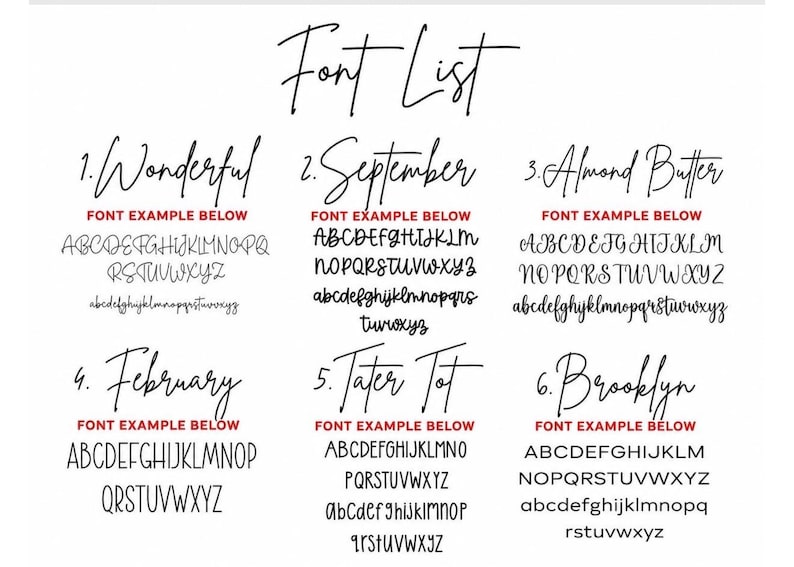 Font List
1. Wonderful
FONT EXAMPLE BELOW
ABCDEFGHIJKLMNOPQ
RSTUVWXYZ
abcdefghijklmnopqrstuvwxyz
2. September
FONT EXAMPLE BELOW
ABCDEFGHIJKLM
NOPQRSTUVWXYZ
abcdefghijklmnopqrs
tuvwxyz
3. Almond Butter
FONT EXAMPLE BELOW
ABCDEFGHIJKLM
NOPQRSTUVWXYZ
abcdefghijklmnopqrstuvwxyz
4. February
FONT EXAMPLE BELOW
ABCDEFGHIJKLMNOP
QRSTUVWXYZ
5. Tater Tot
FONT EXAMPLE BELOW
ABCDEFGHIJKLMNO
PQRSTUVWXYZ
abcdefghijklmnop
qrstuvwxyz
6. Brooklyn
FONT EXAMPLE BELOW
ABCDEFGHIJKLM
NOPQRSTUVWXYZ
abcdefghijklmnopq
rstuvwxyz